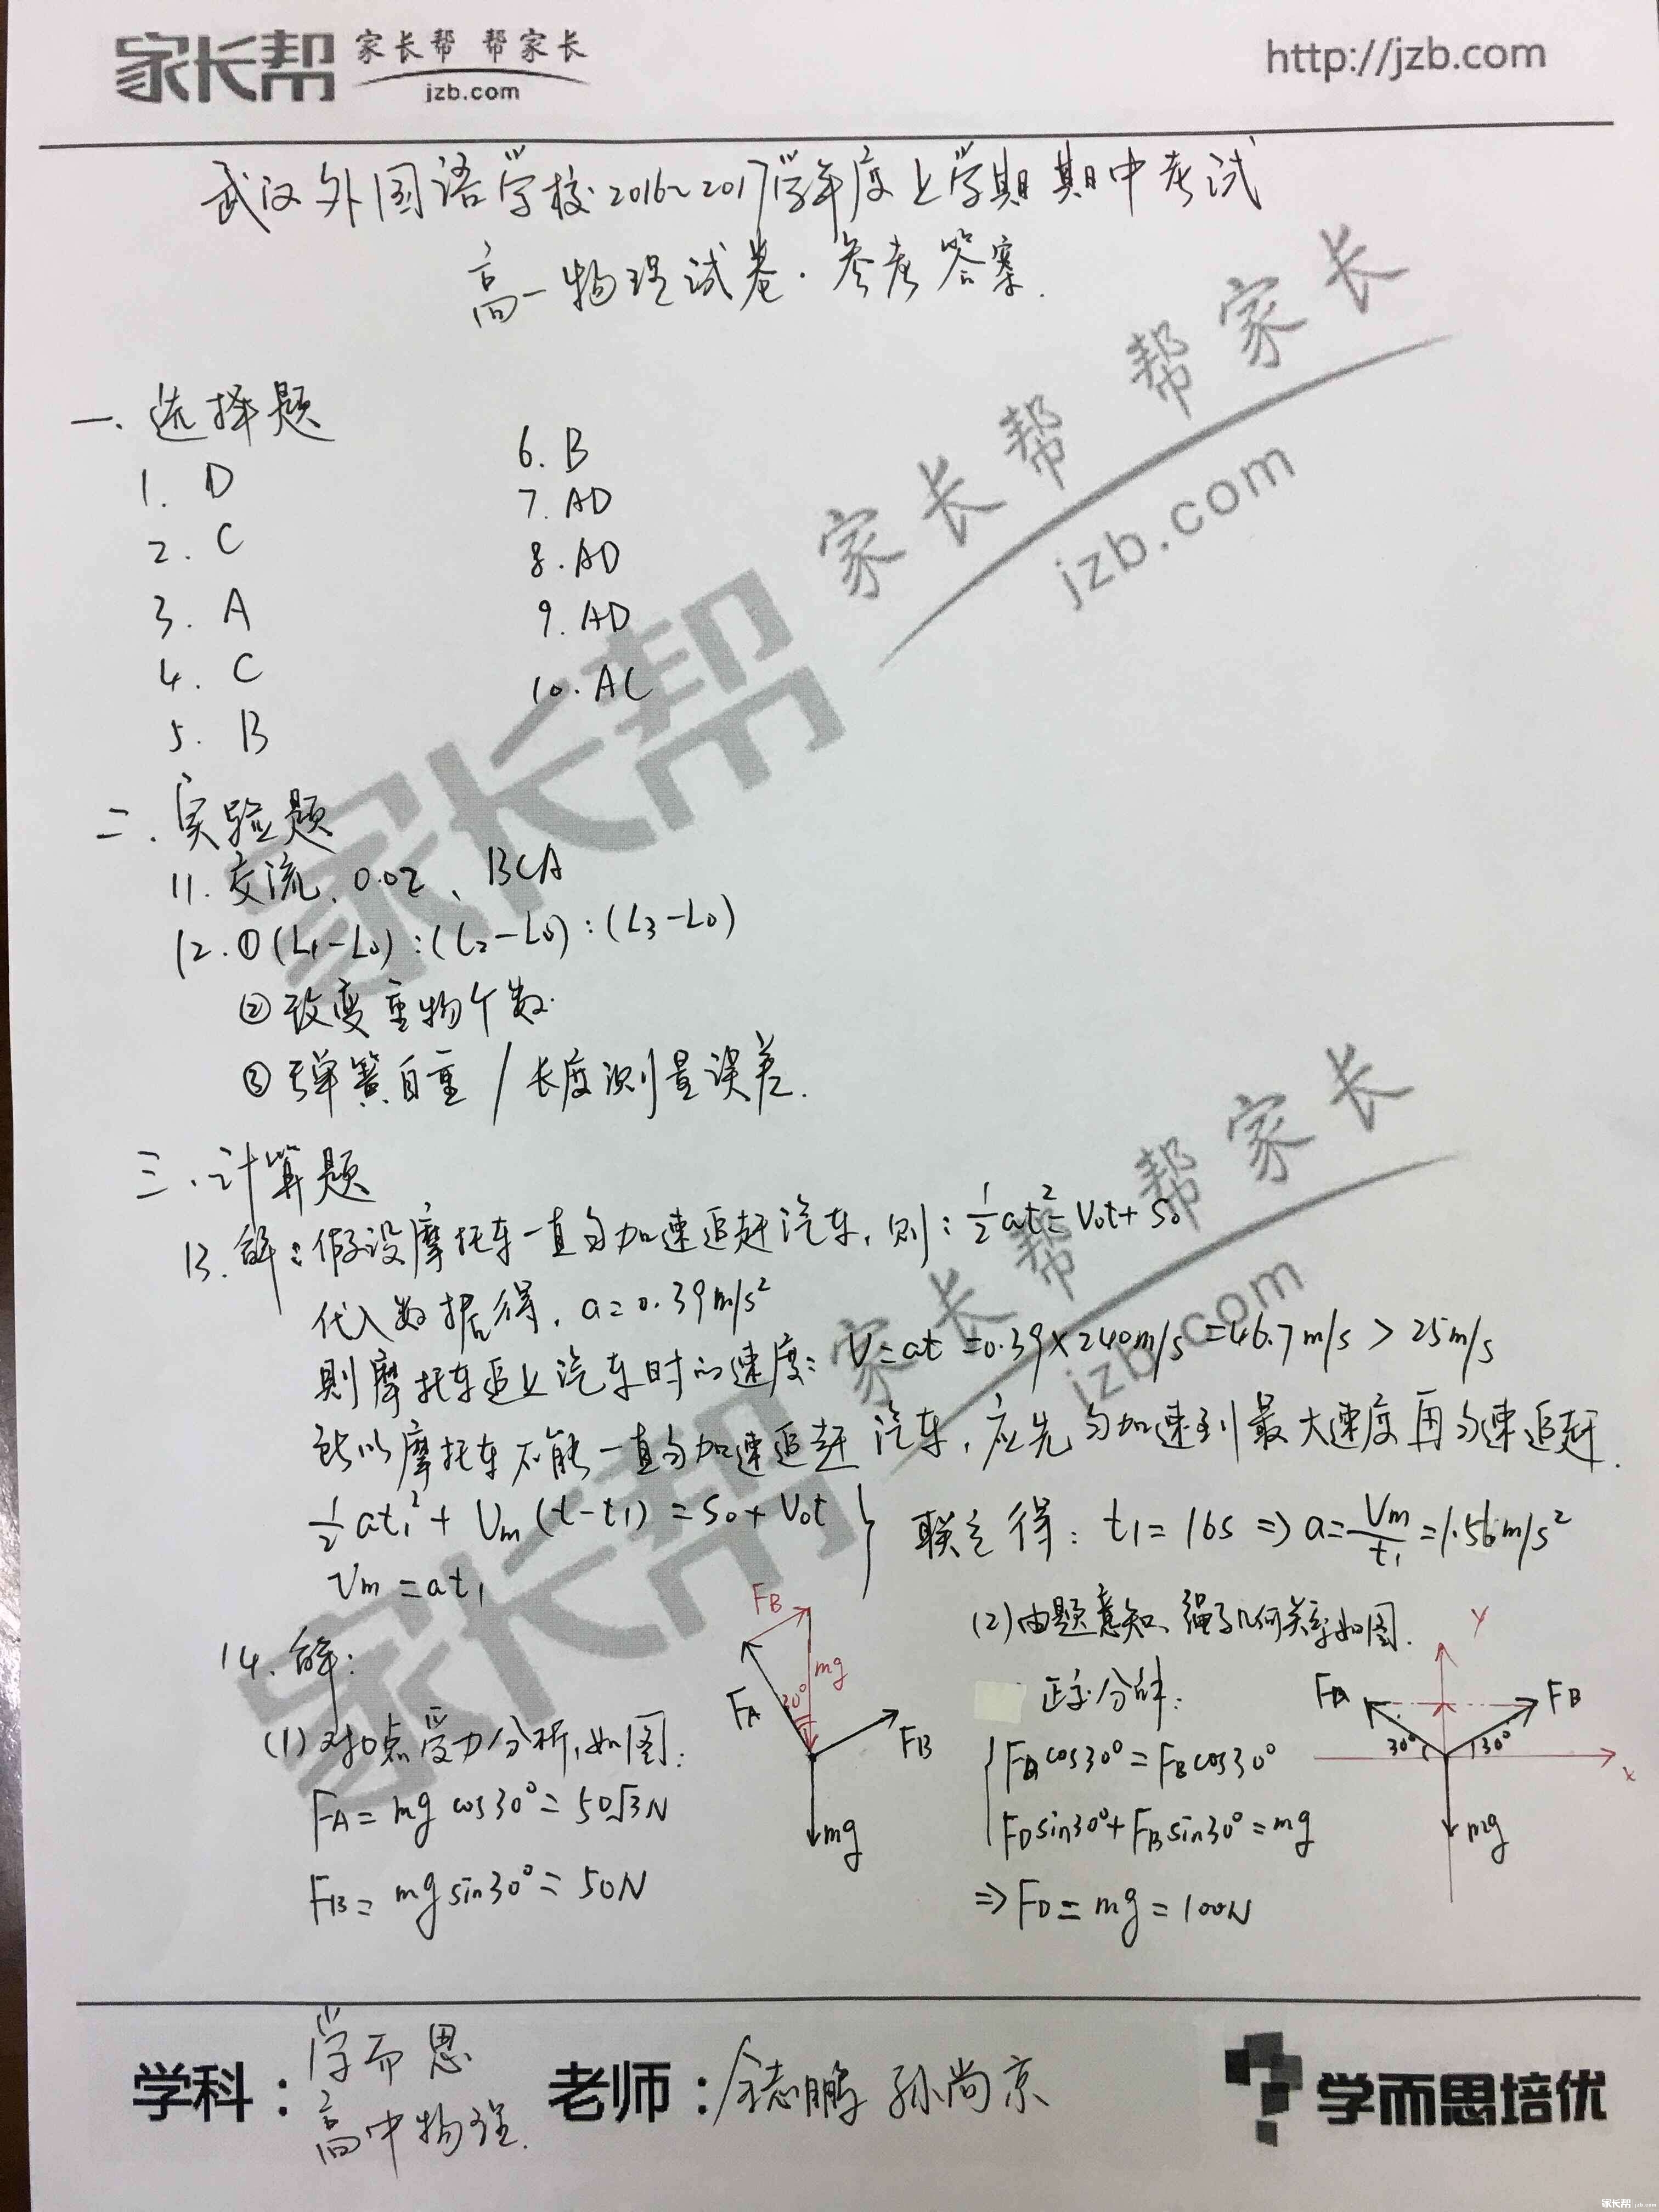 家长帮 家长帮 帮家长
jzb.com
http://jzb.com
武汉外国语学校2016~2017学年度上学期期中考试
高一物理试卷·参考答案.
一、选择题
1. D
2. C
3. A
4. C
5. B
6. B
7. AD
8. AD
9. AD
10. AC
二、实验题
11. 交流、0.02、BCA
12. ①(L₁-L₀):(L₂-L₀):(L₃-L₀)
②改变重物个数.
③弹簧自重/长度测量误差.
三、计算题
13. 解:假设摩托车一直匀加速追赶汽车,则:½at²=V₀t+S₀
代入数据得,a=0.39m/s²
则摩托车追上汽车时的速度:V=at=0.39×240m/s=46.7m/s>25m/s
所以摩托车不能一直匀加速追赶汽车,应先匀加速到最大速度再匀速追赶.
½at₁²+Vm(t-t₁)=S₀+V₀t
Vm=at₁
联立得:t₁=16s⇒a=Vm/t₁=1.56m/s²
14. 解:
(1)对O点受力分析,如图:
FA=mg cos30°=50√3N
FB=mg sin30°=50N
FB
mg
30°
FA
FB
mg
(2)由题意知、绳子几何关系如图.
正交分解:
FDcos30°=FBcos30°
FDsin30°+FBsin30°=mg
⇒FD=mg=100N
y
FD
FB
30°
30°
x
mg
家长帮 家长帮 帮家长
jzb.com
家长帮 家长帮 帮家长
jzb.com
学科:学而思
高中物理.
老师:余志鹏 孙尚京
学而思培优
家长帮 jzb.com